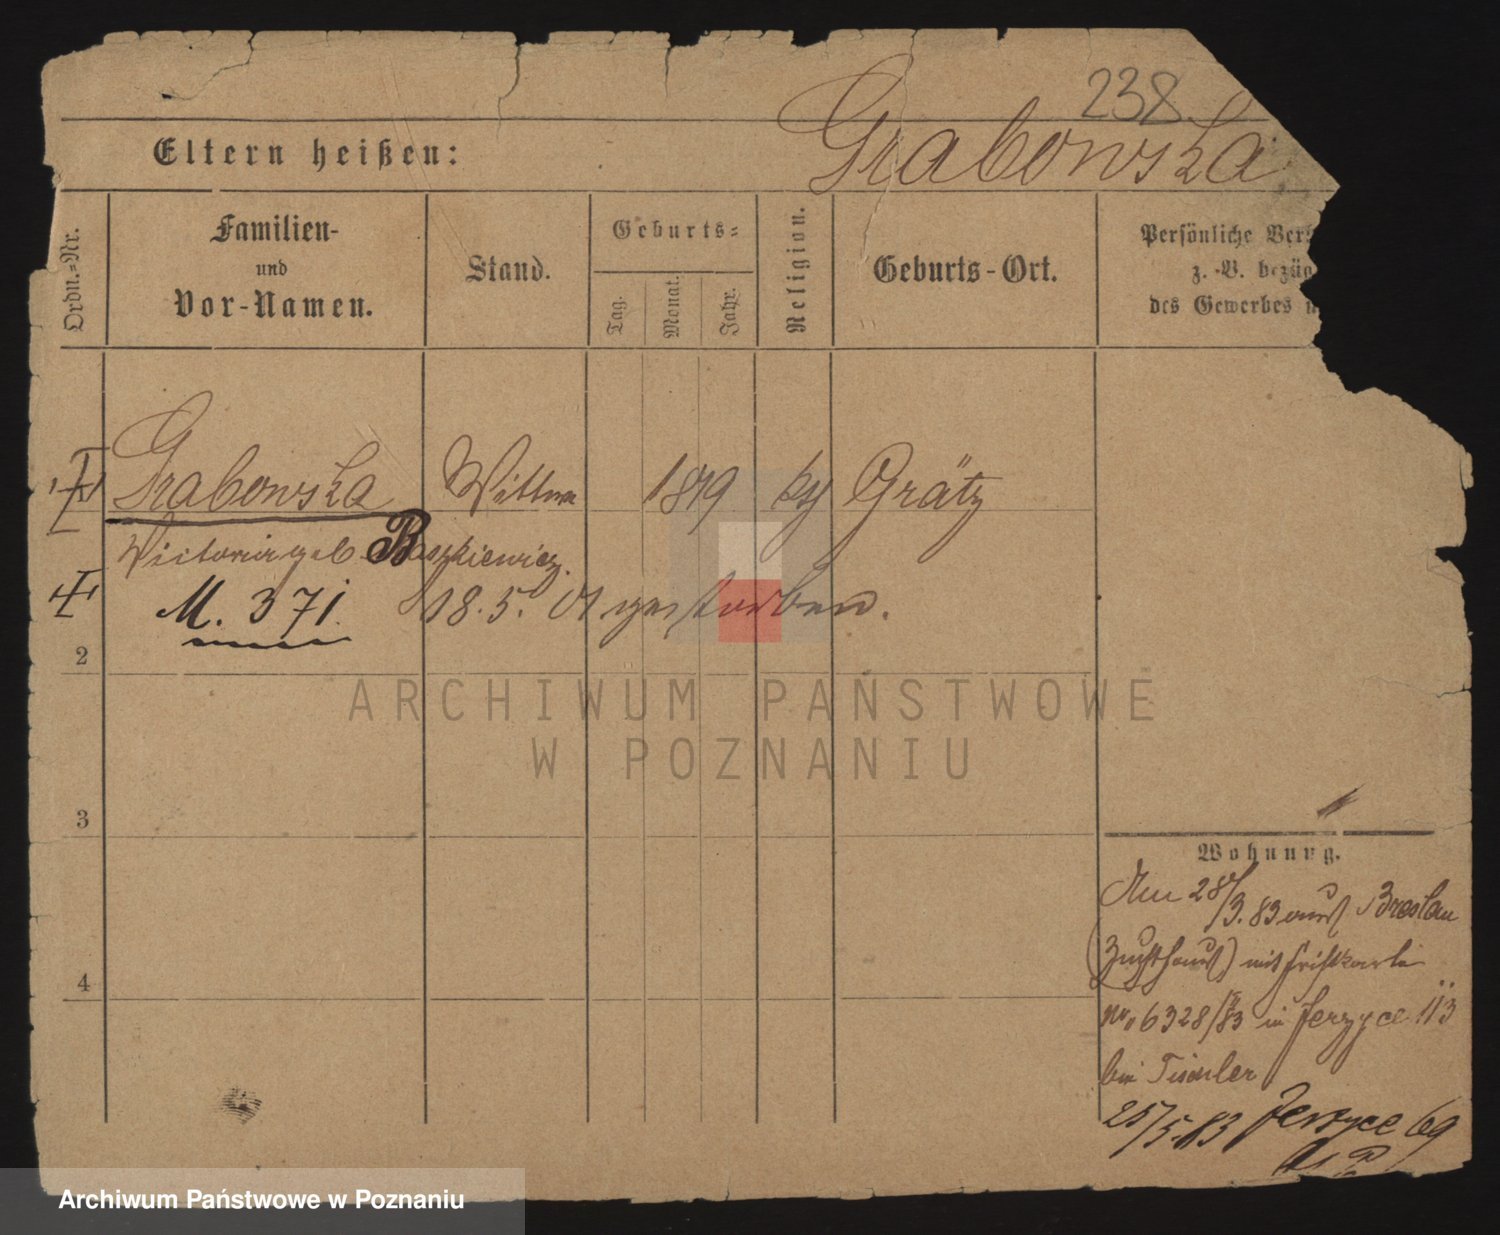 238
Eltern heißen:
Grabowska
Ordn.-Nr.
Familien-
und
Vor-Namen.
Stand.
Geburts-
Tag.
Monat.
Jahr.
Religion.
Geburts-Ort.
Persönliche
z. B.
des Gewerbes
Grabowska Wittwe 1819 ky Grätz
Victoria geb. Baszkiewicz.
M. 371. 18.5. 01 gestorben.
2
3
4
Wohnung.
Am 28/3.83 aus Breslau
(Zuchthaus) mit
No. 6328/83 in Jerzyce 113
bei Tischler
25/5.83 Jerzyce 69
ARCHIWUM PAŃSTWOWE
W POZNANIU
Archiwum Państwowe w Poznaniu